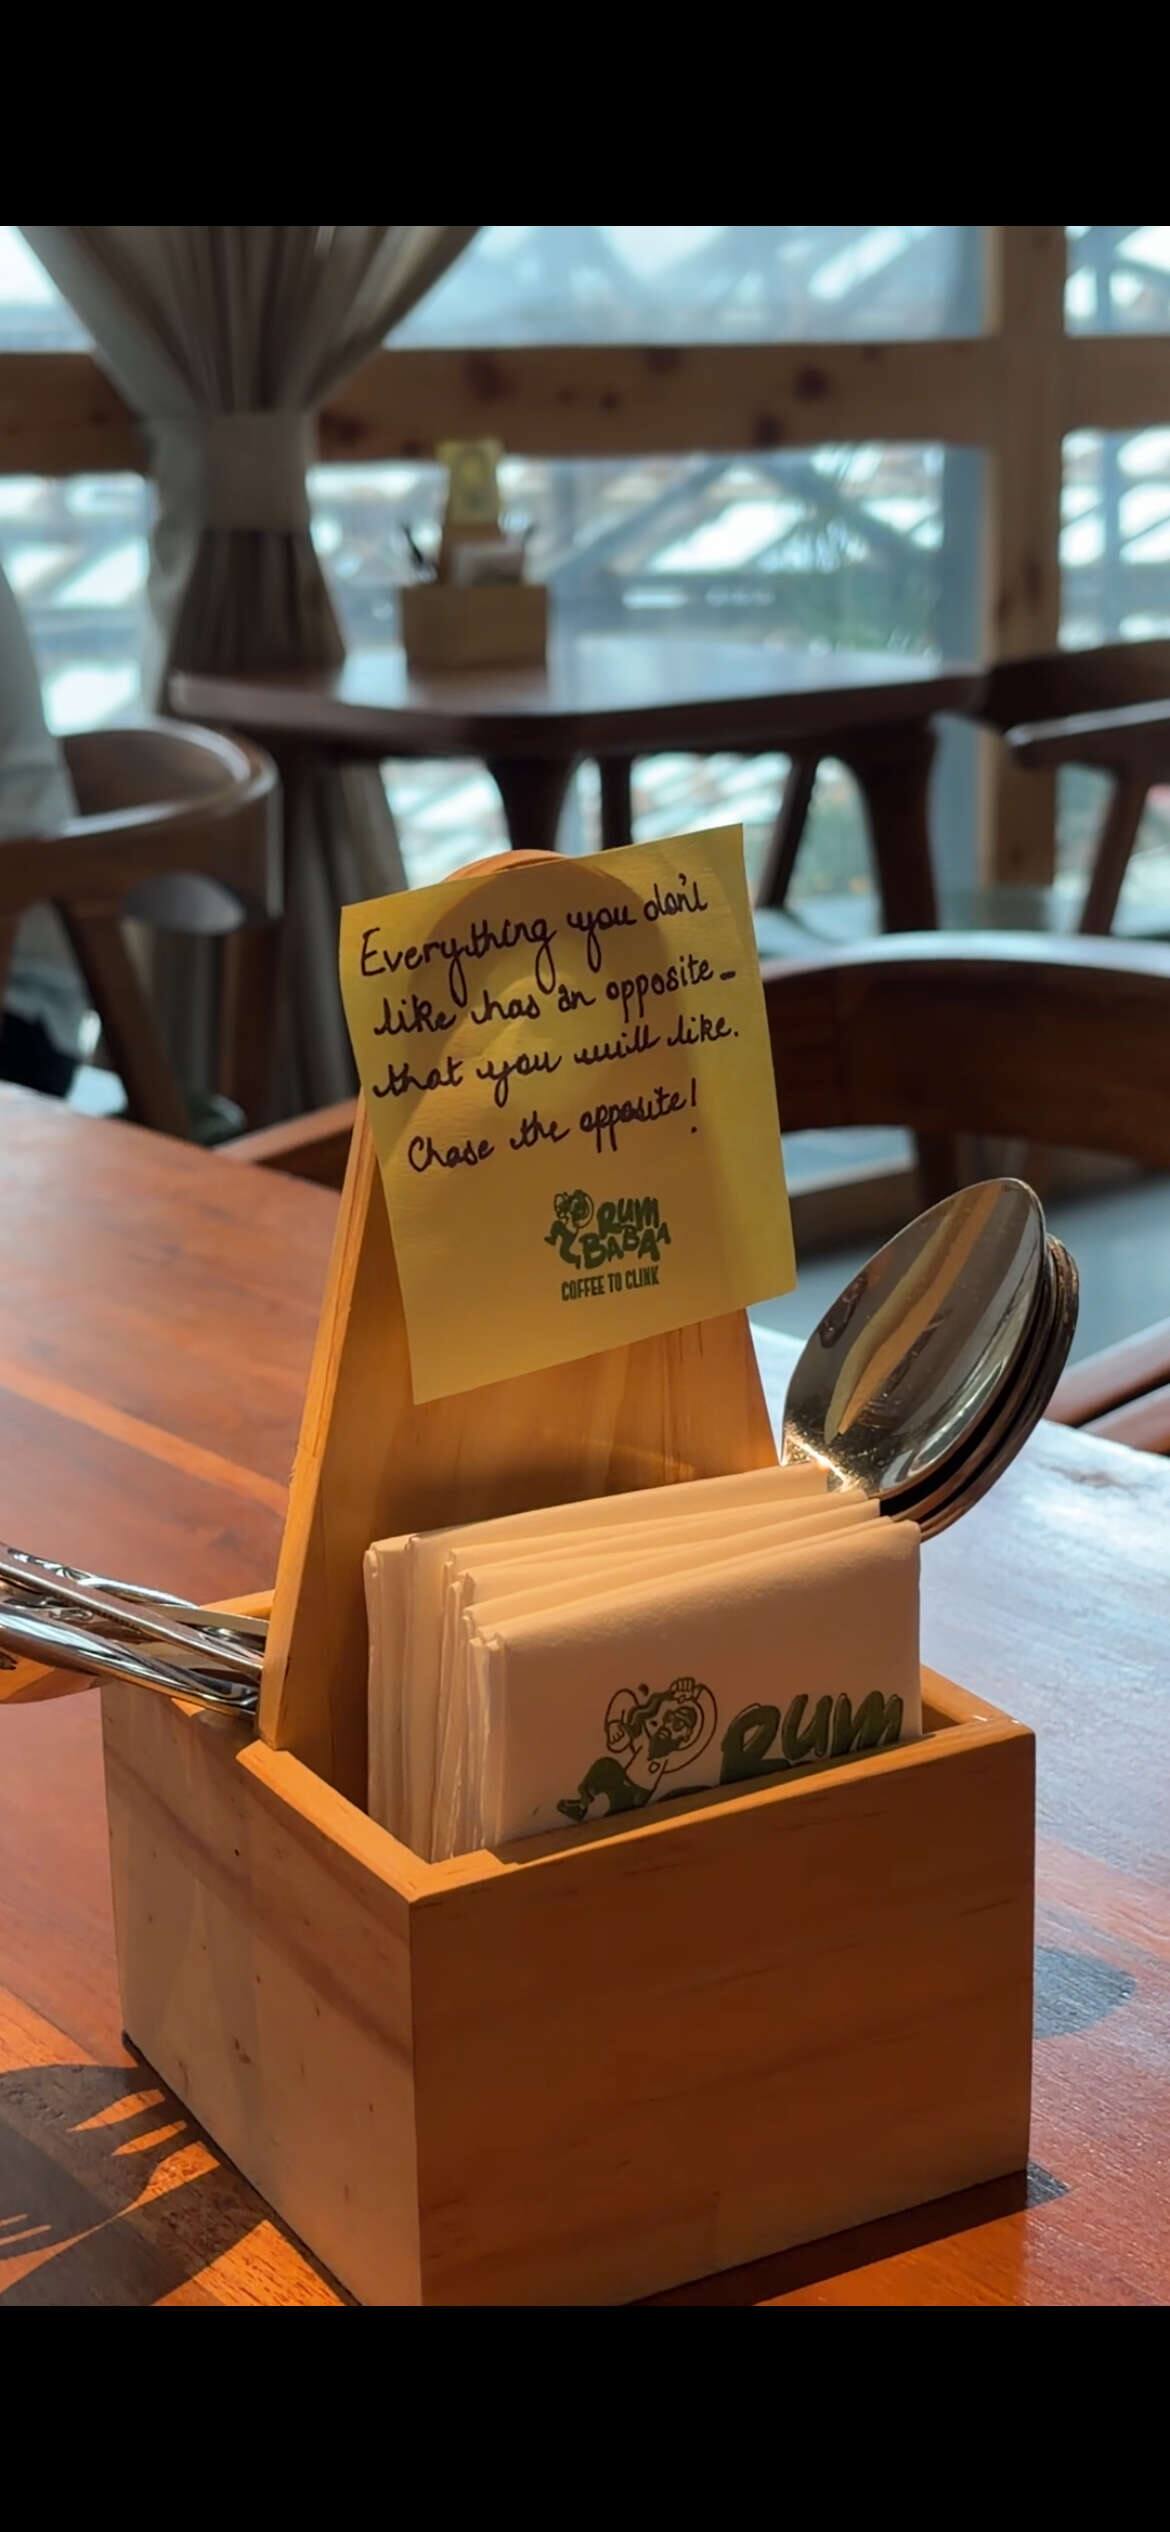 Everything you don't
like has an opposite -
that you will like.
Chase the opposite!
RUM
BABAA
COFFEE TO CLINK
RUM